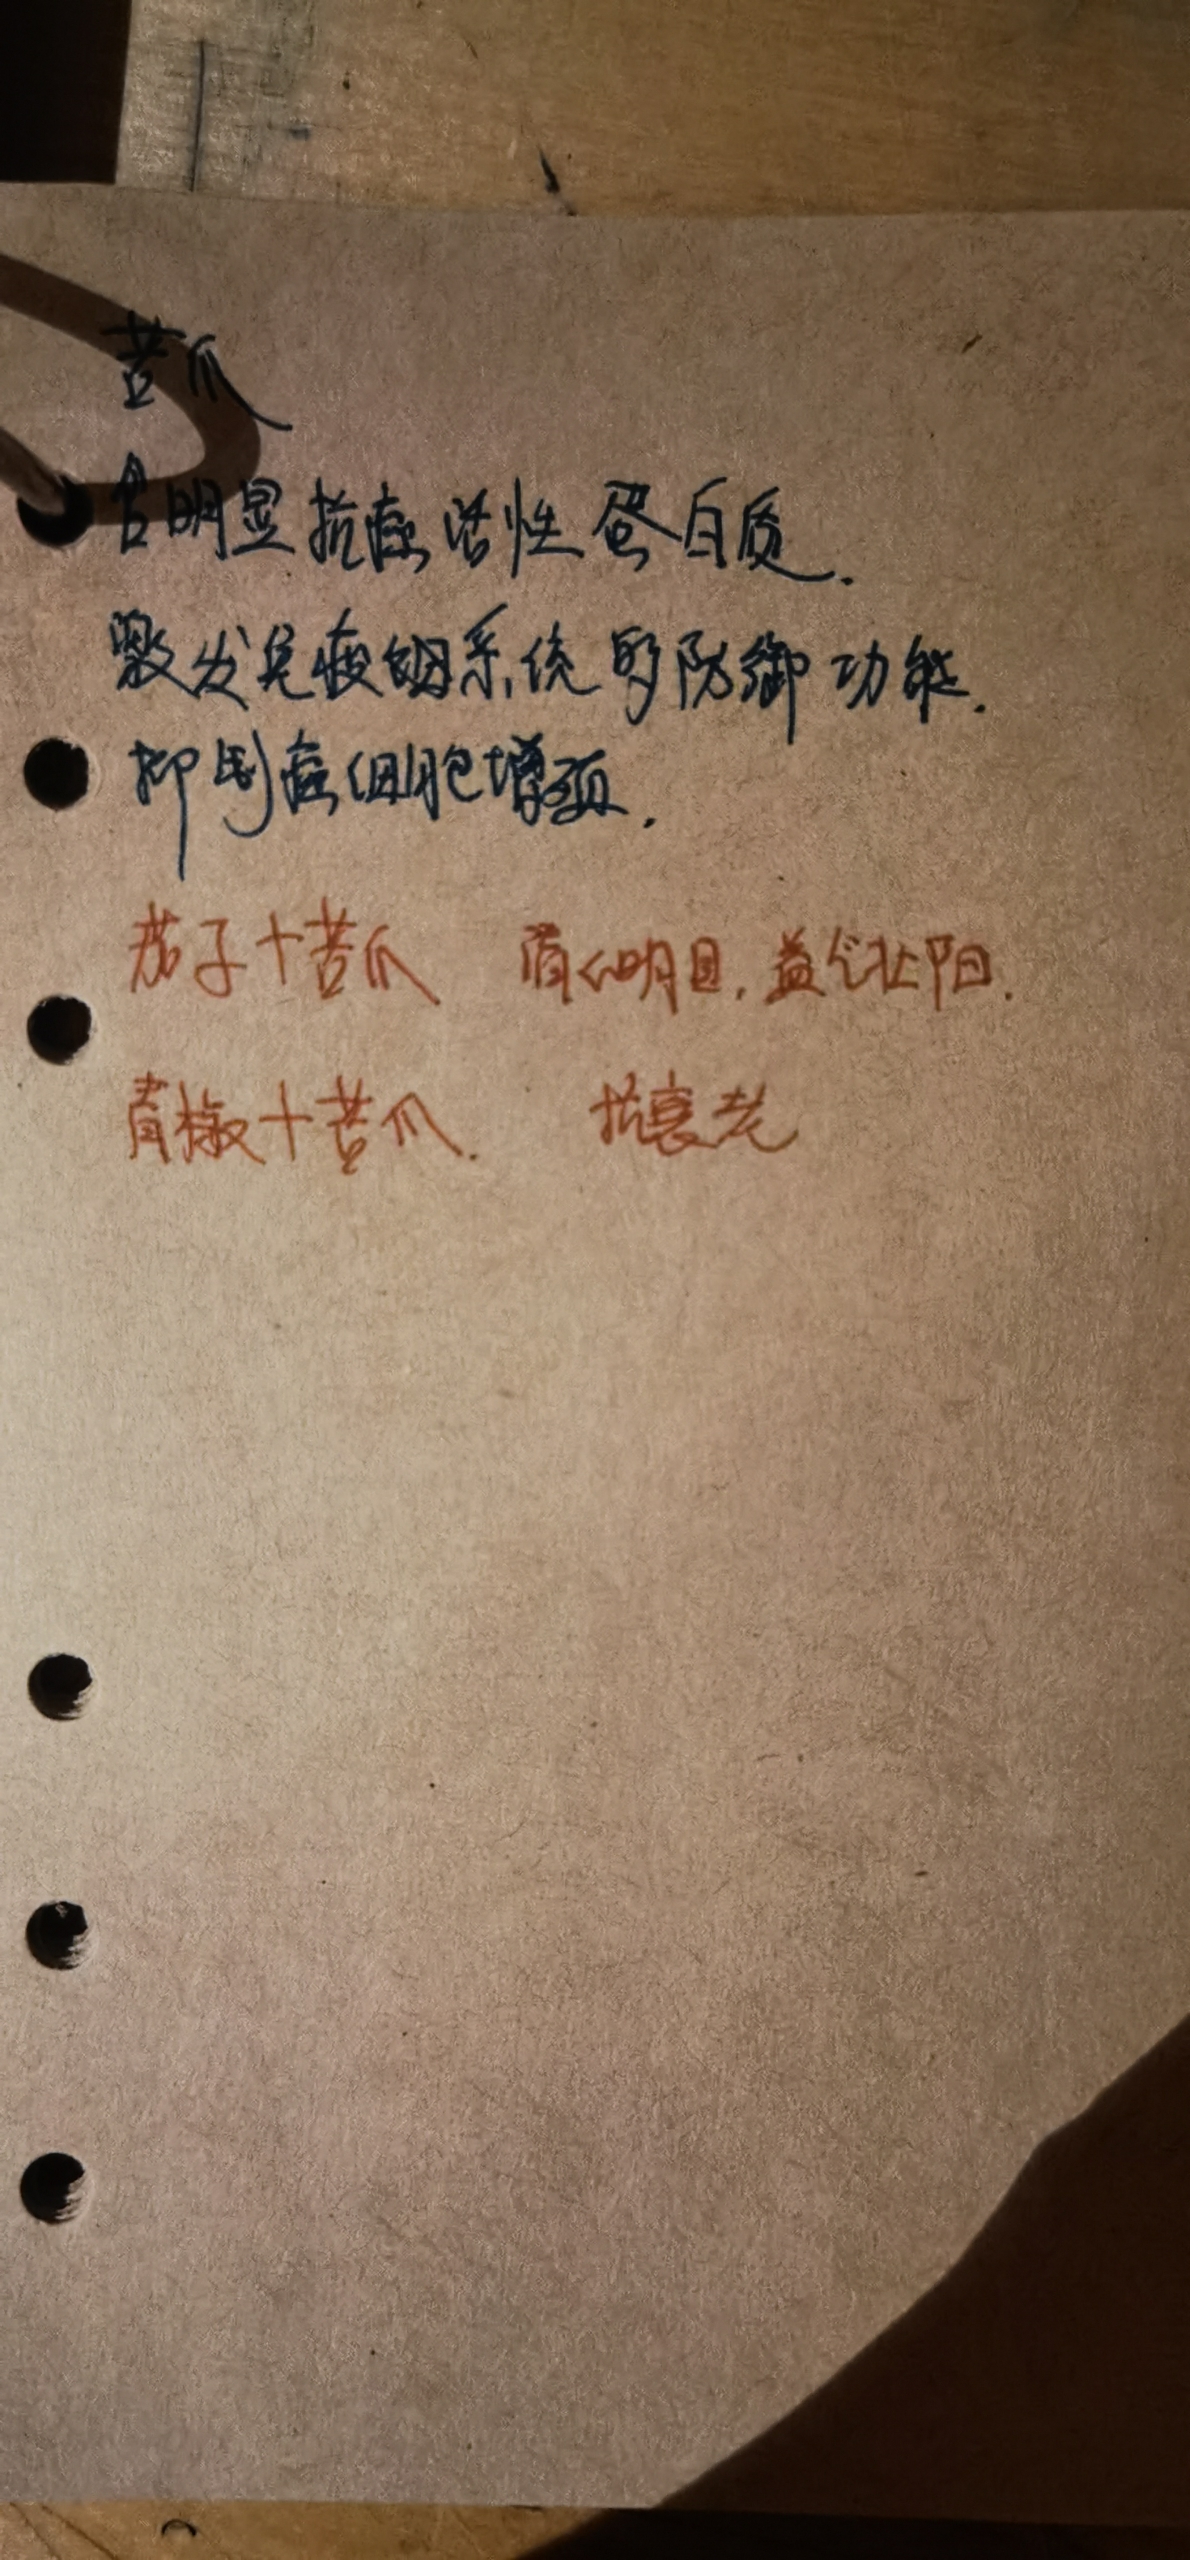 苦瓜
含明显抗癌活性蛋白质.
激发免疫系统的防御功能.
抑制癌细胞增殖.
茄子+苦瓜 清心明目,益气壮阳.
青椒+苦瓜. 抗衰老